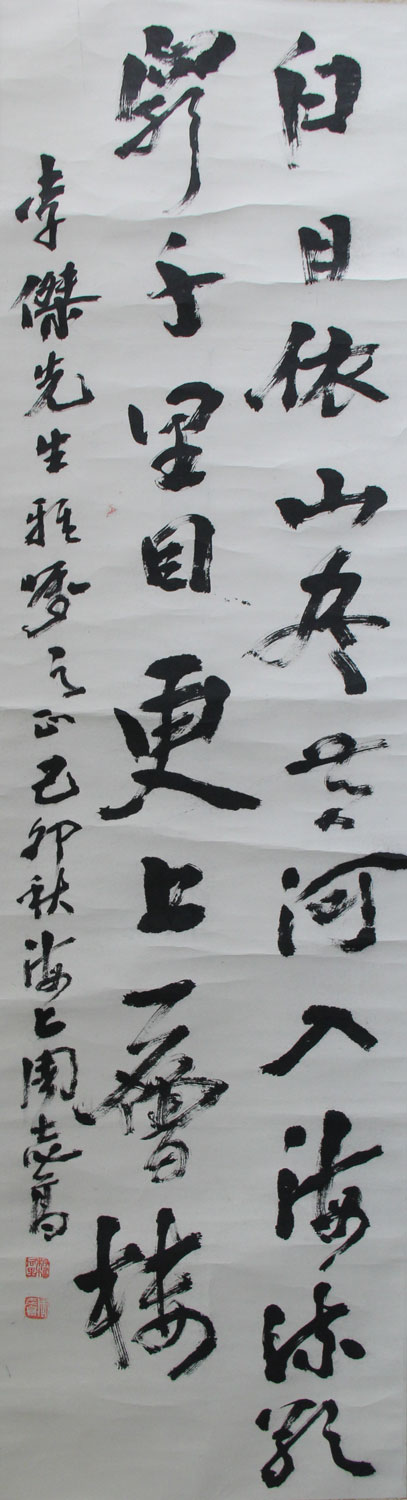 白日依山尽黄河入海流欲
窮千里目更上一層楼
李傑先生雅嘱之正己卯秋海上周志高